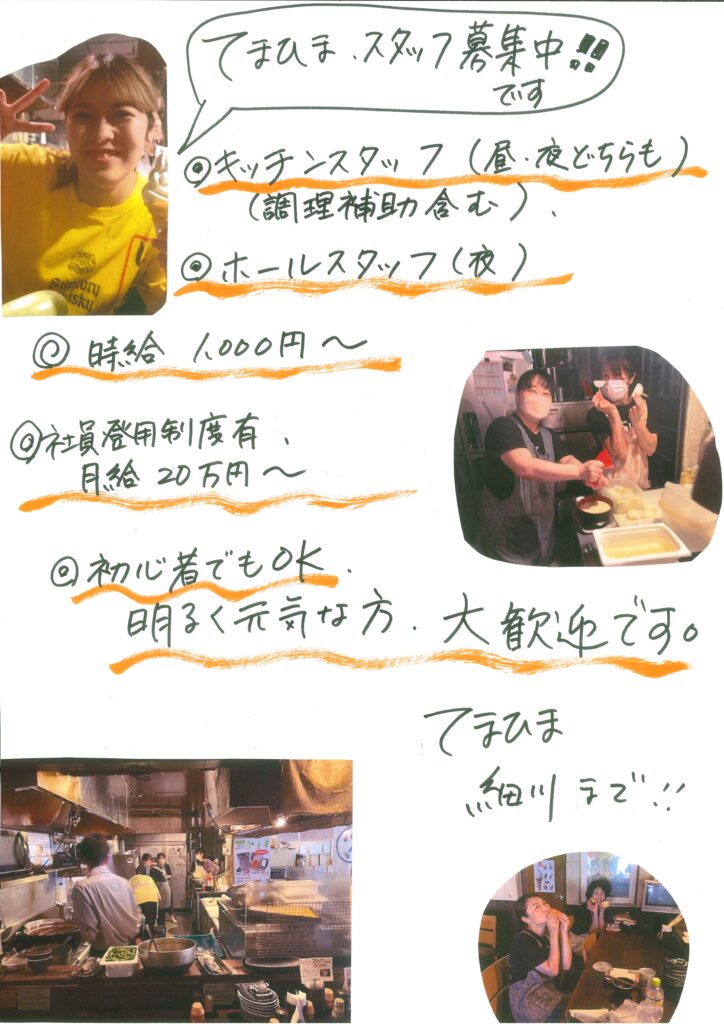 てまひま、スタッフ募集中!!
です
◎キッチンスタッフ(昼・夜どちらも)
(調理補助含む)、
◎ホールスタッフ(夜)
◎時給 1,000円〜
◎社員登用制度有、
月給20万円〜
◎初心者でもOK、
明るく元気な方、大歓迎です。
てまひま
細川まで!!
Suntory
Whisky